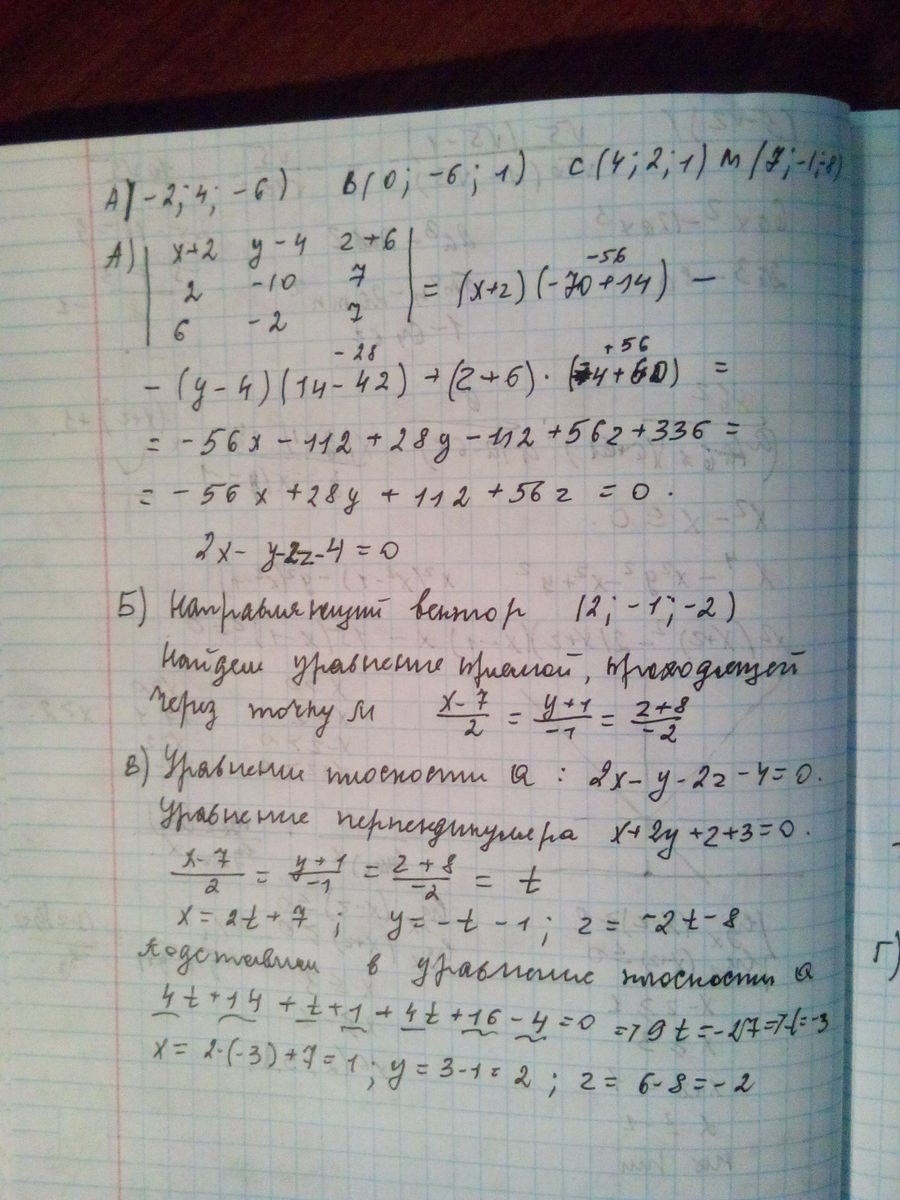 A(-2; 4; -6) B(0; -6; 1) C(4; 2; 1) M(7; -1; -8)
А) | x+2 y-4 z+6 |
| 2 -10 7 | = (x+2)(-70+14) -
| 6 -2 7 |
-56
- (y-4)(14-42) + (z+6)·(-4+60) =
-28 +56
= -56x - 112 + 28y - 112 + 56z + 336 =
= -56x + 28y + 112 + 56z = 0.
2x - y - 2z - 4 = 0
Б) Направляющий вектор (2; -1; -2)
Найдем уравнение прямой, проходящей
через точку M x-7/2 = y+1/-1 = z+8/-2
в) Уравнении плоскости Q : 2x - y - 2z - 4 = 0.
Уравнение перпендикуляра x + 2y + z + 3 = 0.
x-7/2 = y+1/-1 = z+8/-2 = t
x = 2t + 7 ; y = -t - 1 ; z = -2t - 8
Подставим в уравнение плоскости Q
4t + 14 + t + 1 + 4t + 16 - 4 = 0 => 9t = -27 => t = -3
x = 2·(-3) + 7 = 1 ; y = 3 - 1 = 2 ; z = 6 - 8 = -2
Г)